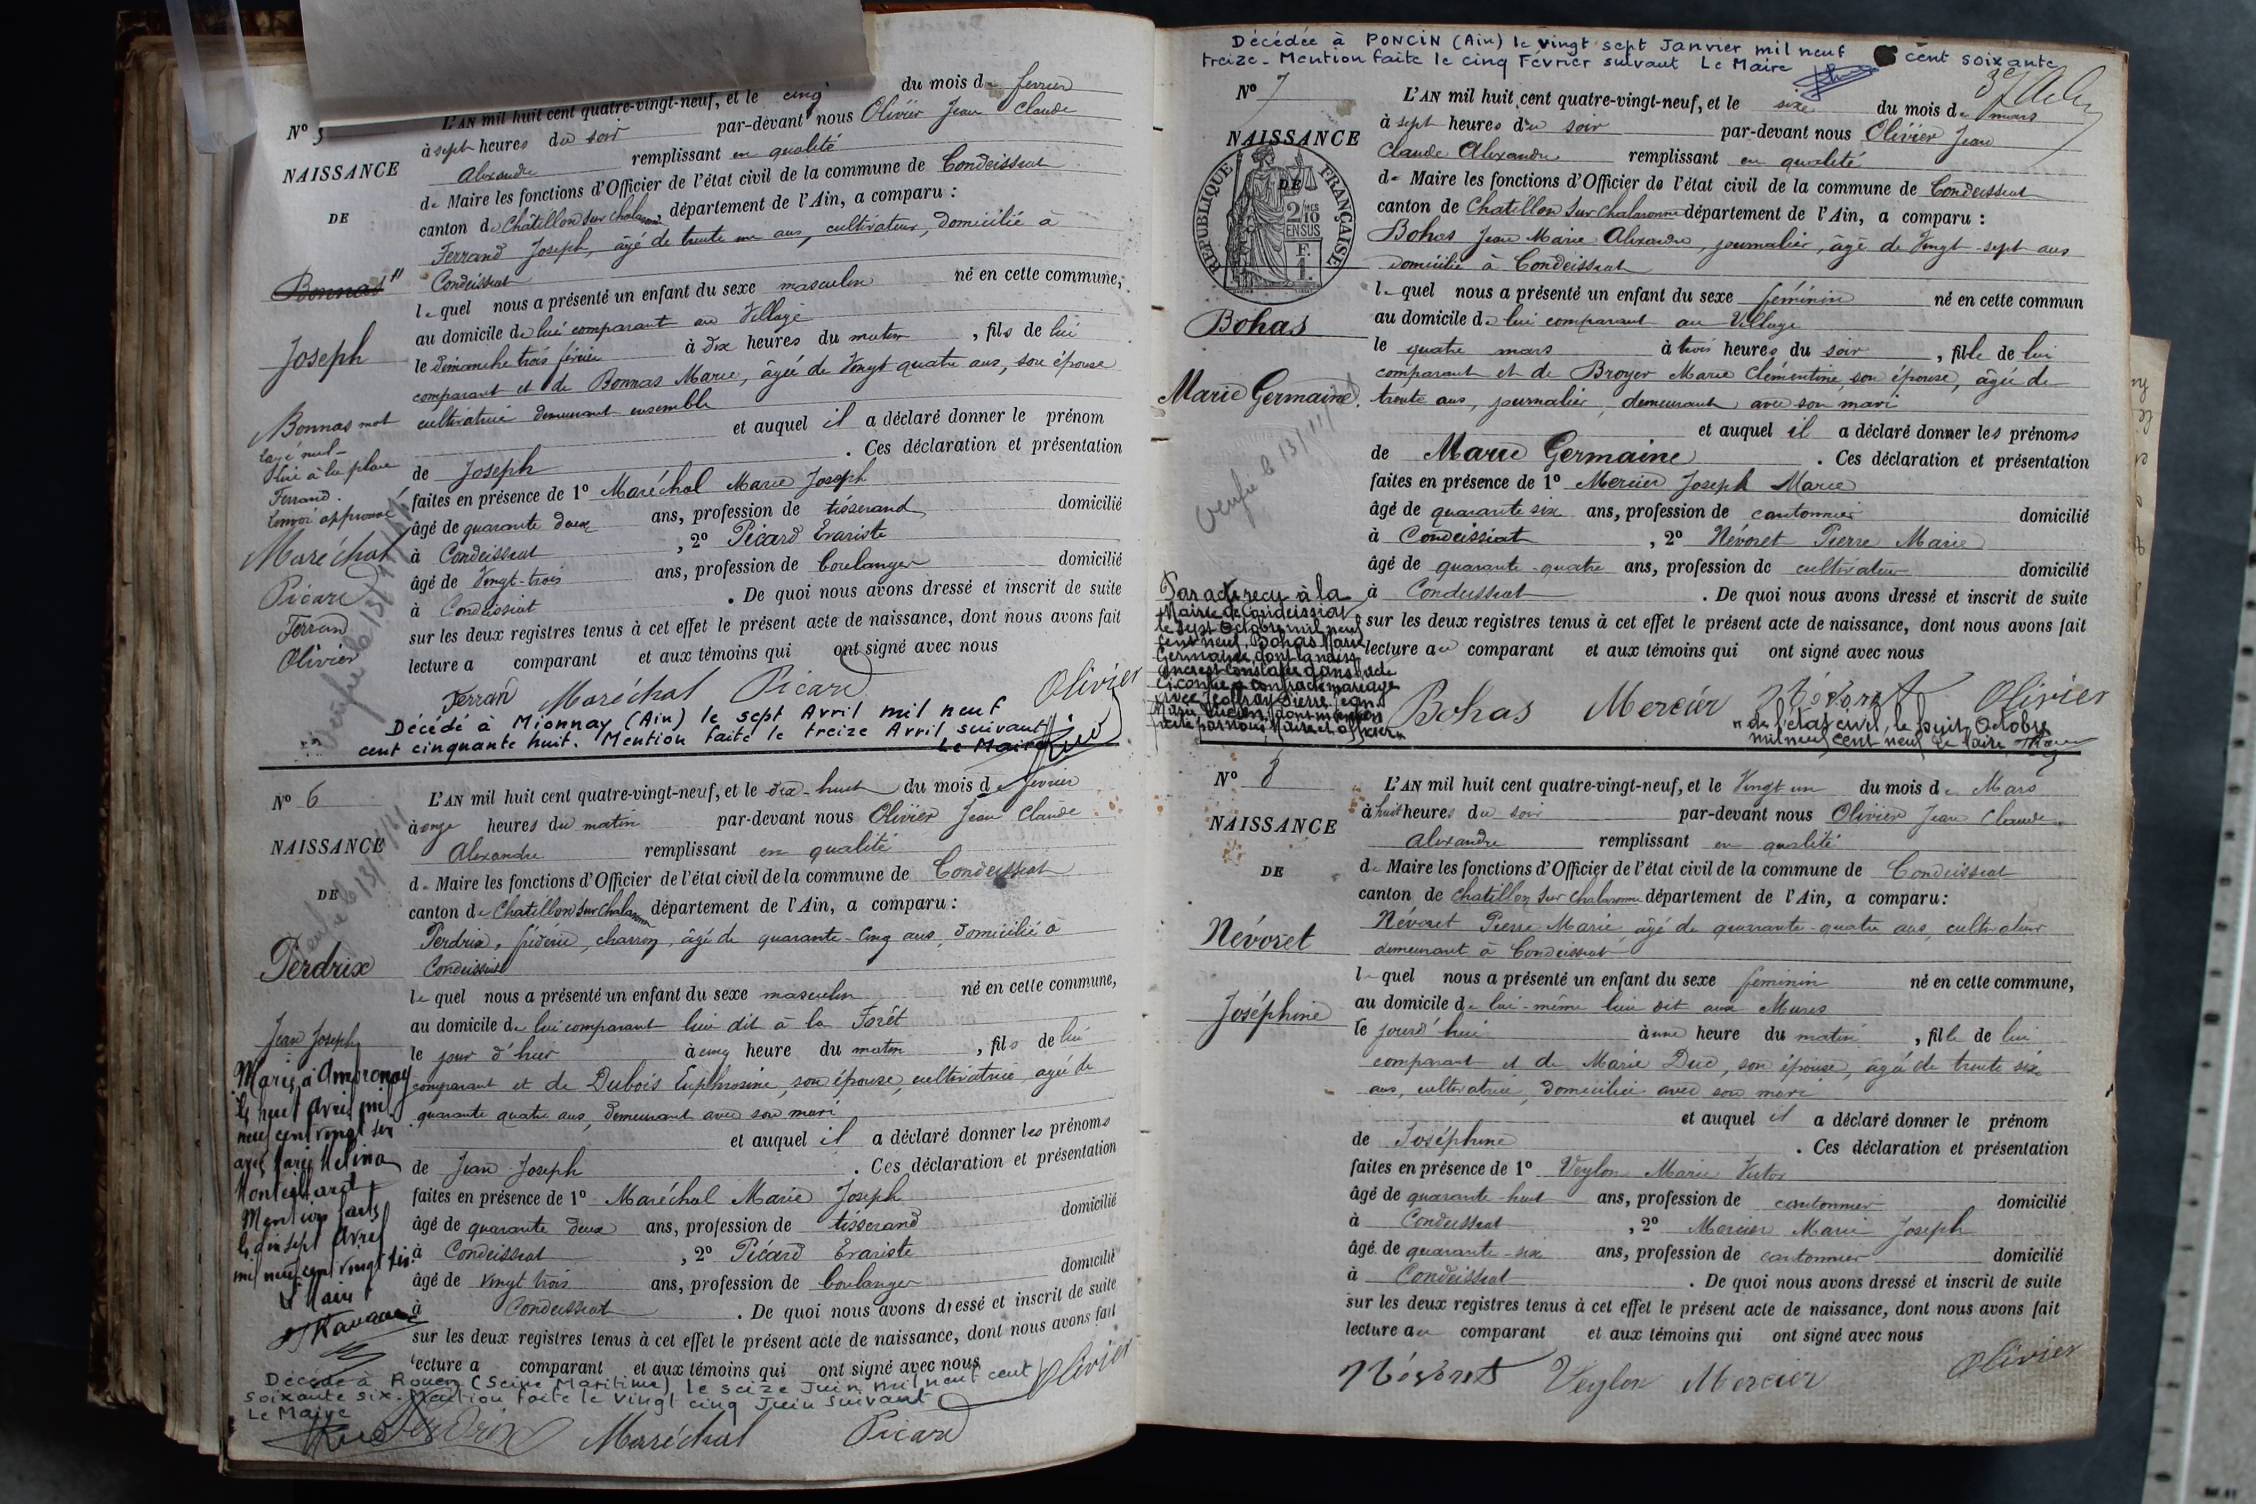 L'AN mil huit cent quatre-vingt-neuf, et le cinq du mois de février
N° 5
à sept heures du soir par-devant nous Olivier Jean Claude
NAISSANCE
Alexandre remplissant en qualité
de Maire les fonctions d'Officier de l'état civil de la commune de Condeissiat
DE
canton de Châtillon sur Chalaronne, département de l'Ain, a comparu :
Ferrand Joseph, âgé de trente un ans, cultivateur, domicilié à
Bonnas
Condeissiat
lequel nous a présenté un enfant du sexe masculin né en cette commune,
au domicile de lui comparant au Village
Joseph
le dimanche trois février à dix heures du matin, fils de lui
comparant et de Bonnas Marie, âgée de Vingt quatre ans, son épouse
cultivatrice demeurant ensemble
et auquel il a déclaré donner le prénom
de Joseph. Ces déclaration et présentation
faites en présence de 1° Maréchal Marie Joseph
âgé de quarante deux ans, profession de tisserand domicilié
à Condeissiat, 2° Picard Evariste
âgé de Vingt-trois ans, profession de boulanger domicilié
à Condeissiat. De quoi nous avons dressé et inscrit de suite
sur les deux registres tenus à cet effet le présent acte de naissance, dont nous avons fait
lecture a comparant et aux témoins qui ont signé avec nous
Bonnas mot
rayé nul
à la place
Ferrand.
renvoi approuvé
Maréchal
Picard
Ferran
Olivier
Vérifié le 13/11/61
Ferran Maréchal Picard Olivier
Décédé à Mionnay (Ain) le sept Avril mil neuf
cent cinquante huit. Mention faite le treize Avril suivant
Le Maire
N° 6
L'AN mil huit cent quatre-vingt-neuf, et le dix-huit du mois de février
à onze heures du matin par-devant nous Olivier Jean Claude
NAISSANCE
Alexandre remplissant en qualité
de Maire les fonctions d'Officier de l'état civil de la commune de Condeissiat
DE
canton de Chatillon sur Chalaronne département de l'Ain, a comparu :
Perdrix, frédéric, charron, âgé de quarante-cinq ans, domicilié à
Perdrix
Condeissiat
lequel nous a présenté un enfant du sexe masculin né en cette commune,
au domicile de lui comparant lieu dit à la Forêt
Jean Joseph
le jour d'hier à cinq heure du matin, fils de lui
comparant et de Dubois Euphrosine, son épouse, cultivatrice, agée de
quarante quatre ans, demeurant avec son mari
et auquel il a déclaré donner les prénoms
de Jean Joseph. Ces déclaration et présentation
faites en présence de 1° Maréchal Marie Joseph
âgé de quarante deux ans, profession de tisserand domicilié
à Condeissiat, 2° Picard Evariste
âgé de vingt trois ans, profession de boulanger domicilié
à Condeissiat. De quoi nous avons dressé et inscrit de suite
sur les deux registres tenus à cet effet le présent acte de naissance, dont nous avons fait
lecture a comparant et aux témoins qui ont signé avec nous
Marié à Ambronay
le neuf Avril mil
neuf cent vingt six
avec Marie Melina
Monteilhard
Mention faite
le dix sept Avril
mil neuf cent vingt six
Le Maire
Décédé à Rouen (Seine Maritime) le seize Juin mil neuf cent
soixante six. Mention faite le vingt cinq Juin suivant
Le Maire
Olivier
Perdrix Maréchal Picard
Décédée à PONCIN (Ain) le vingt sept Janvier mil neuf cent soixante
treize. Mention faite le cinq Février suivant Le Maire
N° 7
L'AN mil huit cent quatre-vingt-neuf, et le sixe du mois de mars
à sept heures du soir par-devant nous Olivier Jean
NAISSANCE
Claude Alexandre remplissant en qualité
DE
de Maire les fonctions d'Officier de l'état civil de la commune de Condeissiat
canton de Chatillon sur Chalaronne département de l'Ain, a comparu :
RÉPUBLIQUE FRANÇAISE
2/10 MES
EN SUS
F.
1.
Bohas Jean Marie Alexandre, journalier, âgé de Vingt-sept ans
domicilié à Condeissiat
lequel nous a présenté un enfant du sexe féminin né en cette commun
Bohas
au domicile de lui comparant au Village
le quatre mars à trois heures du soir, fille de lui
comparant et de Broyer Marie Clémentine, son épouse, âgée de
Marie Germaine.
trente ans, journalier, demeurant avec son mari
et auquel il a déclaré donner les prénoms
de Marie Germaine. Ces déclaration et présentation
faites en présence de 1° Mercier Joseph Marie
âgé de quarante six ans, profession de cantonnier domicilié
à Condeissiat, 2° Névoret Pierre Marie
âgé de quarante-quatre ans, profession de cultivateur domicilié
à Condeissiat. De quoi nous avons dressé et inscrit de suite
sur les deux registres tenus à cet effet le présent acte de naissance, dont nous avons fait
lecture au comparant et aux témoins qui ont signé avec nous
Vérifié le 13/11/61
Par acte reçu à la
Mairie de Condeissiat
le sept Octobre mil neuf
cent neuf, Bohas Marie
Germaine, dont la naissance
est constatée dans l'acte
ci-contre a contracté mariage
avec Pierre Jean
Marie, dont mention
faite par nous, Maire et officier
Bohas Mercier Névoret Olivier
de l'état civil, le huit Octobre
mil neuf cent neuf. Le Maire
N° 8
L'AN mil huit cent quatre-vingt-neuf, et le Vingt un du mois de Mars
à huit heures du soir par-devant nous Olivier Jean Claude
NAISSANCE
Alexandre remplissant en qualité
DE
de Maire les fonctions d'Officier de l'état civil de la commune de Condeissiat
canton de Chatillon sur Chalaronne département de l'Ain, a comparu :
Névoret Pierre Marie, âgé de quarante-quatre ans, cultivateur
Névoret
demeurant à Condeissiat
lequel nous a présenté un enfant du sexe féminin né en cette commune,
au domicile de lui-même lieu dit aux Mures
Joséphine
le jourd'hui à une heure du matin, fille de lui
comparant et de Marie Duc, son épouse, âgée de trente six
ans, cultivatrice, domiciliée avec son mari
et auquel il a déclaré donner le prénom
de Joséphine. Ces déclaration et présentation
faites en présence de 1° Veylon Marie Victor
âgé de quarante-huit ans, profession de cantonnier domicilié
à Condeissiat, 2° Mercier Marie Joseph
âgé de quarante-six ans, profession de cantonnier domicilié
à Condeissiat. De quoi nous avons dressé et inscrit de suite
sur les deux registres tenus à cet effet le présent acte de naissance, dont nous avons fait
lecture au comparant et aux témoins qui ont signé avec nous
Névoret Veylon Mercier Olivier